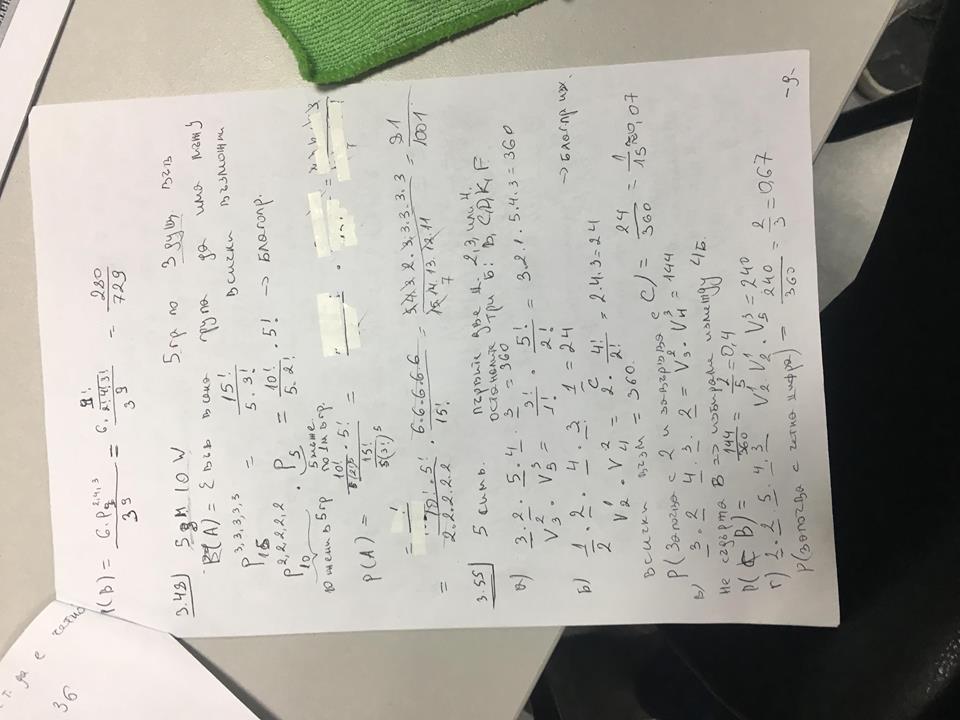 т. да е четно
36
P(B) = 6.P9^2,4,3 / 3^9 = 6. 9!/2!4!3! / 3^9 = 280/729
3.48) 5 M 10 W 5 гр по 3 души във
(A) = {във всяка група да има мъж}
P15^3,3,3,3,3 = 15!/5.3! всички възможни
P10^2,2,2,2,2 . P5 = 10!/5.2! . 5! → Благопр.
10 жени в 5 гр 5 мъже. по 1м в гр.
P(A) = 10!/5(2!)^5 . 5! / 15!/5(3!)^5 =
= 10! . 5!/2.2.2.2.2 . 6.6.6.6.6/15! = 5.4.3.2.3.3.3.3.3/15.14.13.12.11 = 81/1001
7
3.55 5 симв. първите две ц. 2,3, или 4.
останалите три Б: B, C, D, K, F
а) 3.2.5.4.3 = 360
V3^2 . V5^3 = 3!/1! . 5!/2! = 3.2.1.5.4.3 = 360
Б) 1.2.4.3.1 = 24 → Благопр изх.
2 C
V2^1 . V4^2 = 2. 4!/2! = 2.4.3 = 24
всички възм = 360.
P(Започва с 2 и завършва с C) = 24/360 = 1/15 ≈ 0,07
в) 3.2 4.3.2 = V3^2 . V4^3 = 144
Не съдържа B => избираме измежду 4Б.
P( B) = 144/360 = 2/5 = 0,4
г) 2.2.5.4.3 V2^1 . V2^1 . V5^3 = 240
P(започва с четна цифра) = 240/360 = 2/3 = 0,67
-9-